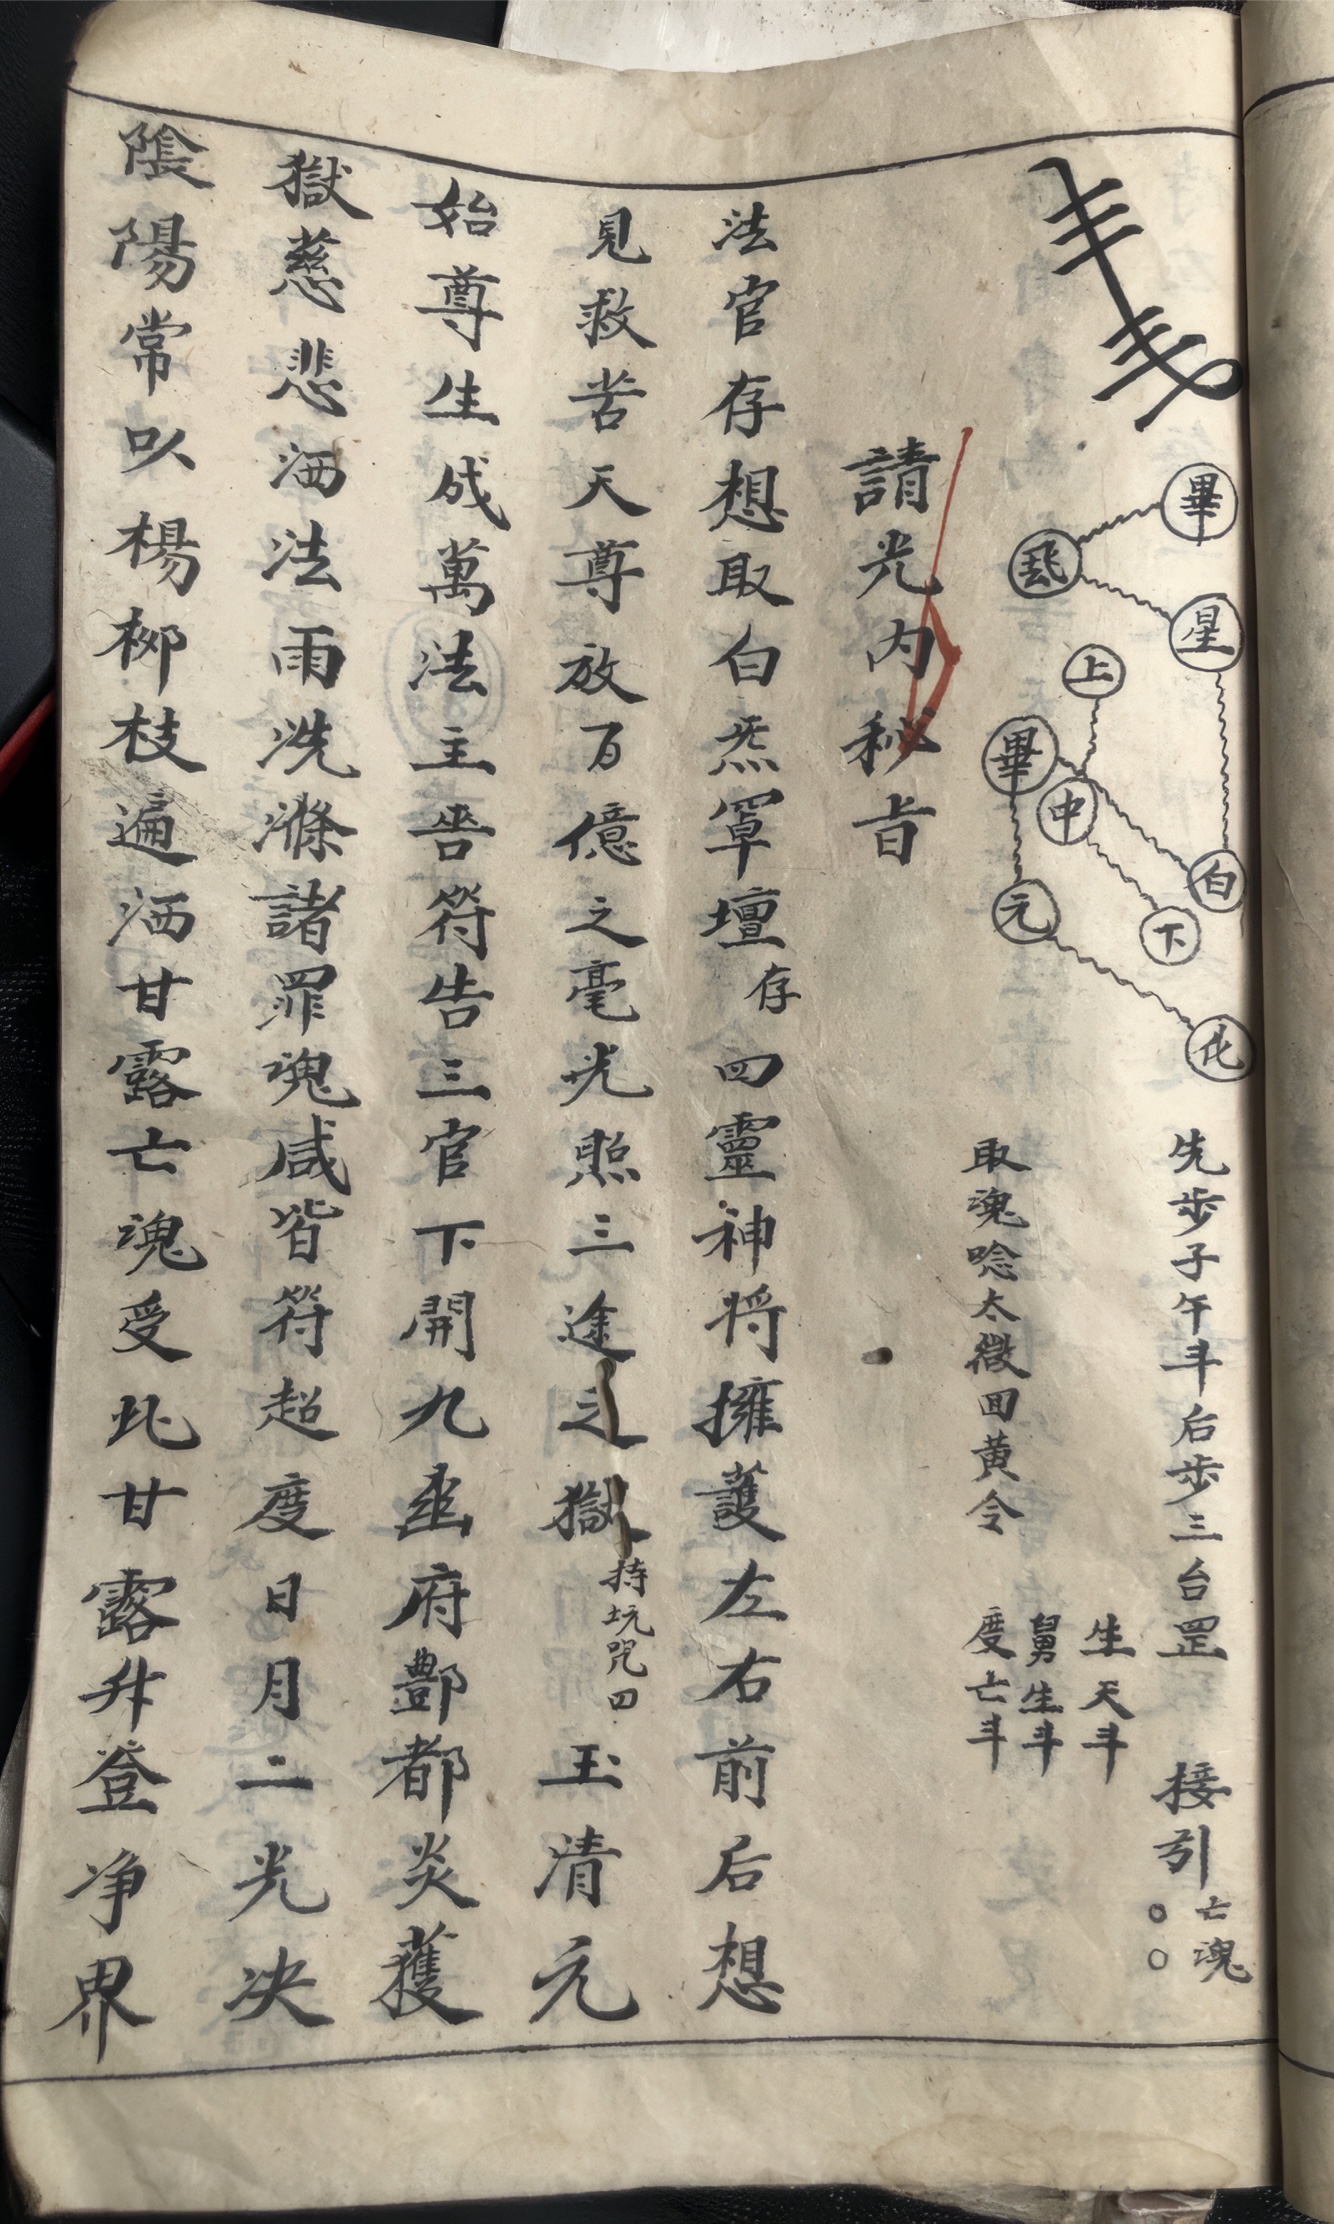 畢
星
白
化
上
畢
中
下
元
先步子午斗后步三台罡
接引亡魂○○
生天斗
舅生斗
度亡斗
取魂唸太微回黃令
請光内秘旨
法官存想取白炁罩壇存四靈神将擁護左右前后想
見救苦天尊放百億之毫光照三途之獄持坑咒四玉清元
始尊生成萬法主告符告三官下開九幽府酆都炎獲
獄慈悲洒法雨洗滌諸罪魂咸皆符超度日月二光决
陰陽常以楊柳枝遍洒甘露亡魂受此甘露升登净界